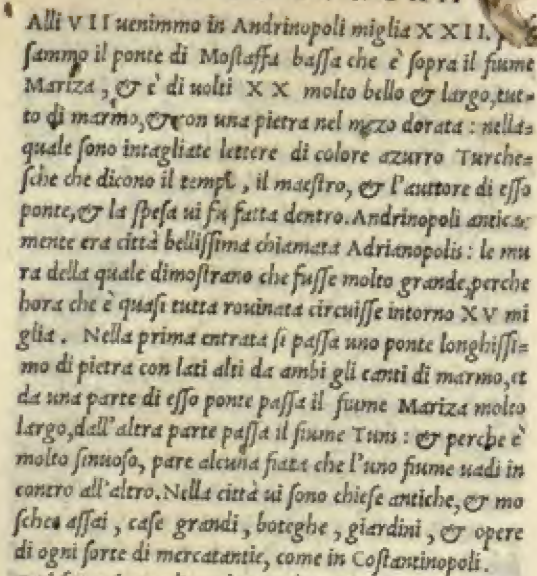 Alli VII uenimmo in Andrinopoli miglia XXII.
ſammo il ponte di Moſtaffa baſſa che è ſopra il fiume
Mariza, & è di uolti XX molto bello & largo, tut-
to di marmo, & con una pietra nel mezo dorata : nella-
quale ſono intagliate lettere di colore azurro Turche-
ſche che dicono il tempo, il maeſtro, & l'auttore di eſſo
ponte, & la ſpeſa ui fu fatta dentro. Andrinopoli antica-
mente era città belliſſima chiamata Adrianopolis : le mu
ra della quale dimoſtrano che fuſſe molto grande, perche
hora che è quaſi tutta rouinata circuiſſe intorno XV mi
glia. Nella prima entrata ſi paſſa uno ponte longhiſſi-
mo di pietra con lati alti da ambi gli canti di marmo, et
da una parte di eſſo ponte paſſa il fiume Mariza molto
largo, dall'altra parte paſſa il fiume Tuns : & perche è
molto ſinuoſo, pare alcuna fiata che l'uno fiume uadi in
contro all'altro. Nella città ui ſono chieſe antiche, & mo
ſchee aſſai, caſe grandi, boteghe, giardini, & opere
di ogni ſorte di mercatantie, come in Coſtantinopoli.